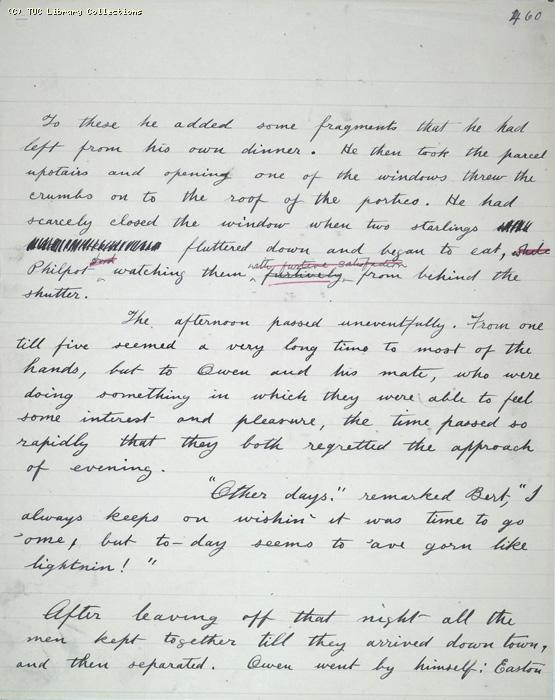 (C) TUC Library Collections
460
To these he added some fragments that he had
left from his own dinner. He then took the parcel
upstairs and opening one of the windows threw the
crumbs on to the roof of the portico. He had
scarcely closed the window when two starlings
fluttered down and began to eat, while
Philpot watching them with furtive satisfaction furtively from behind the
shutter.
The afternoon passed uneventfully. From one
till five seemed a very long time to most of the
hands, but to Owen and his mate, who were
doing something in which they were able to feel
some interest and pleasure, the time passed so
rapidly that they both regretted the approach
of evening.
"Other days." remarked Bert, "I
always keeps on wishin' it was time to go
'ome, but to-day seems to 'ave gorn like
lightnin! "
After leaving off that night all the
men kept together till they arrived down town,
and then separated. Owen went by himself: Easton